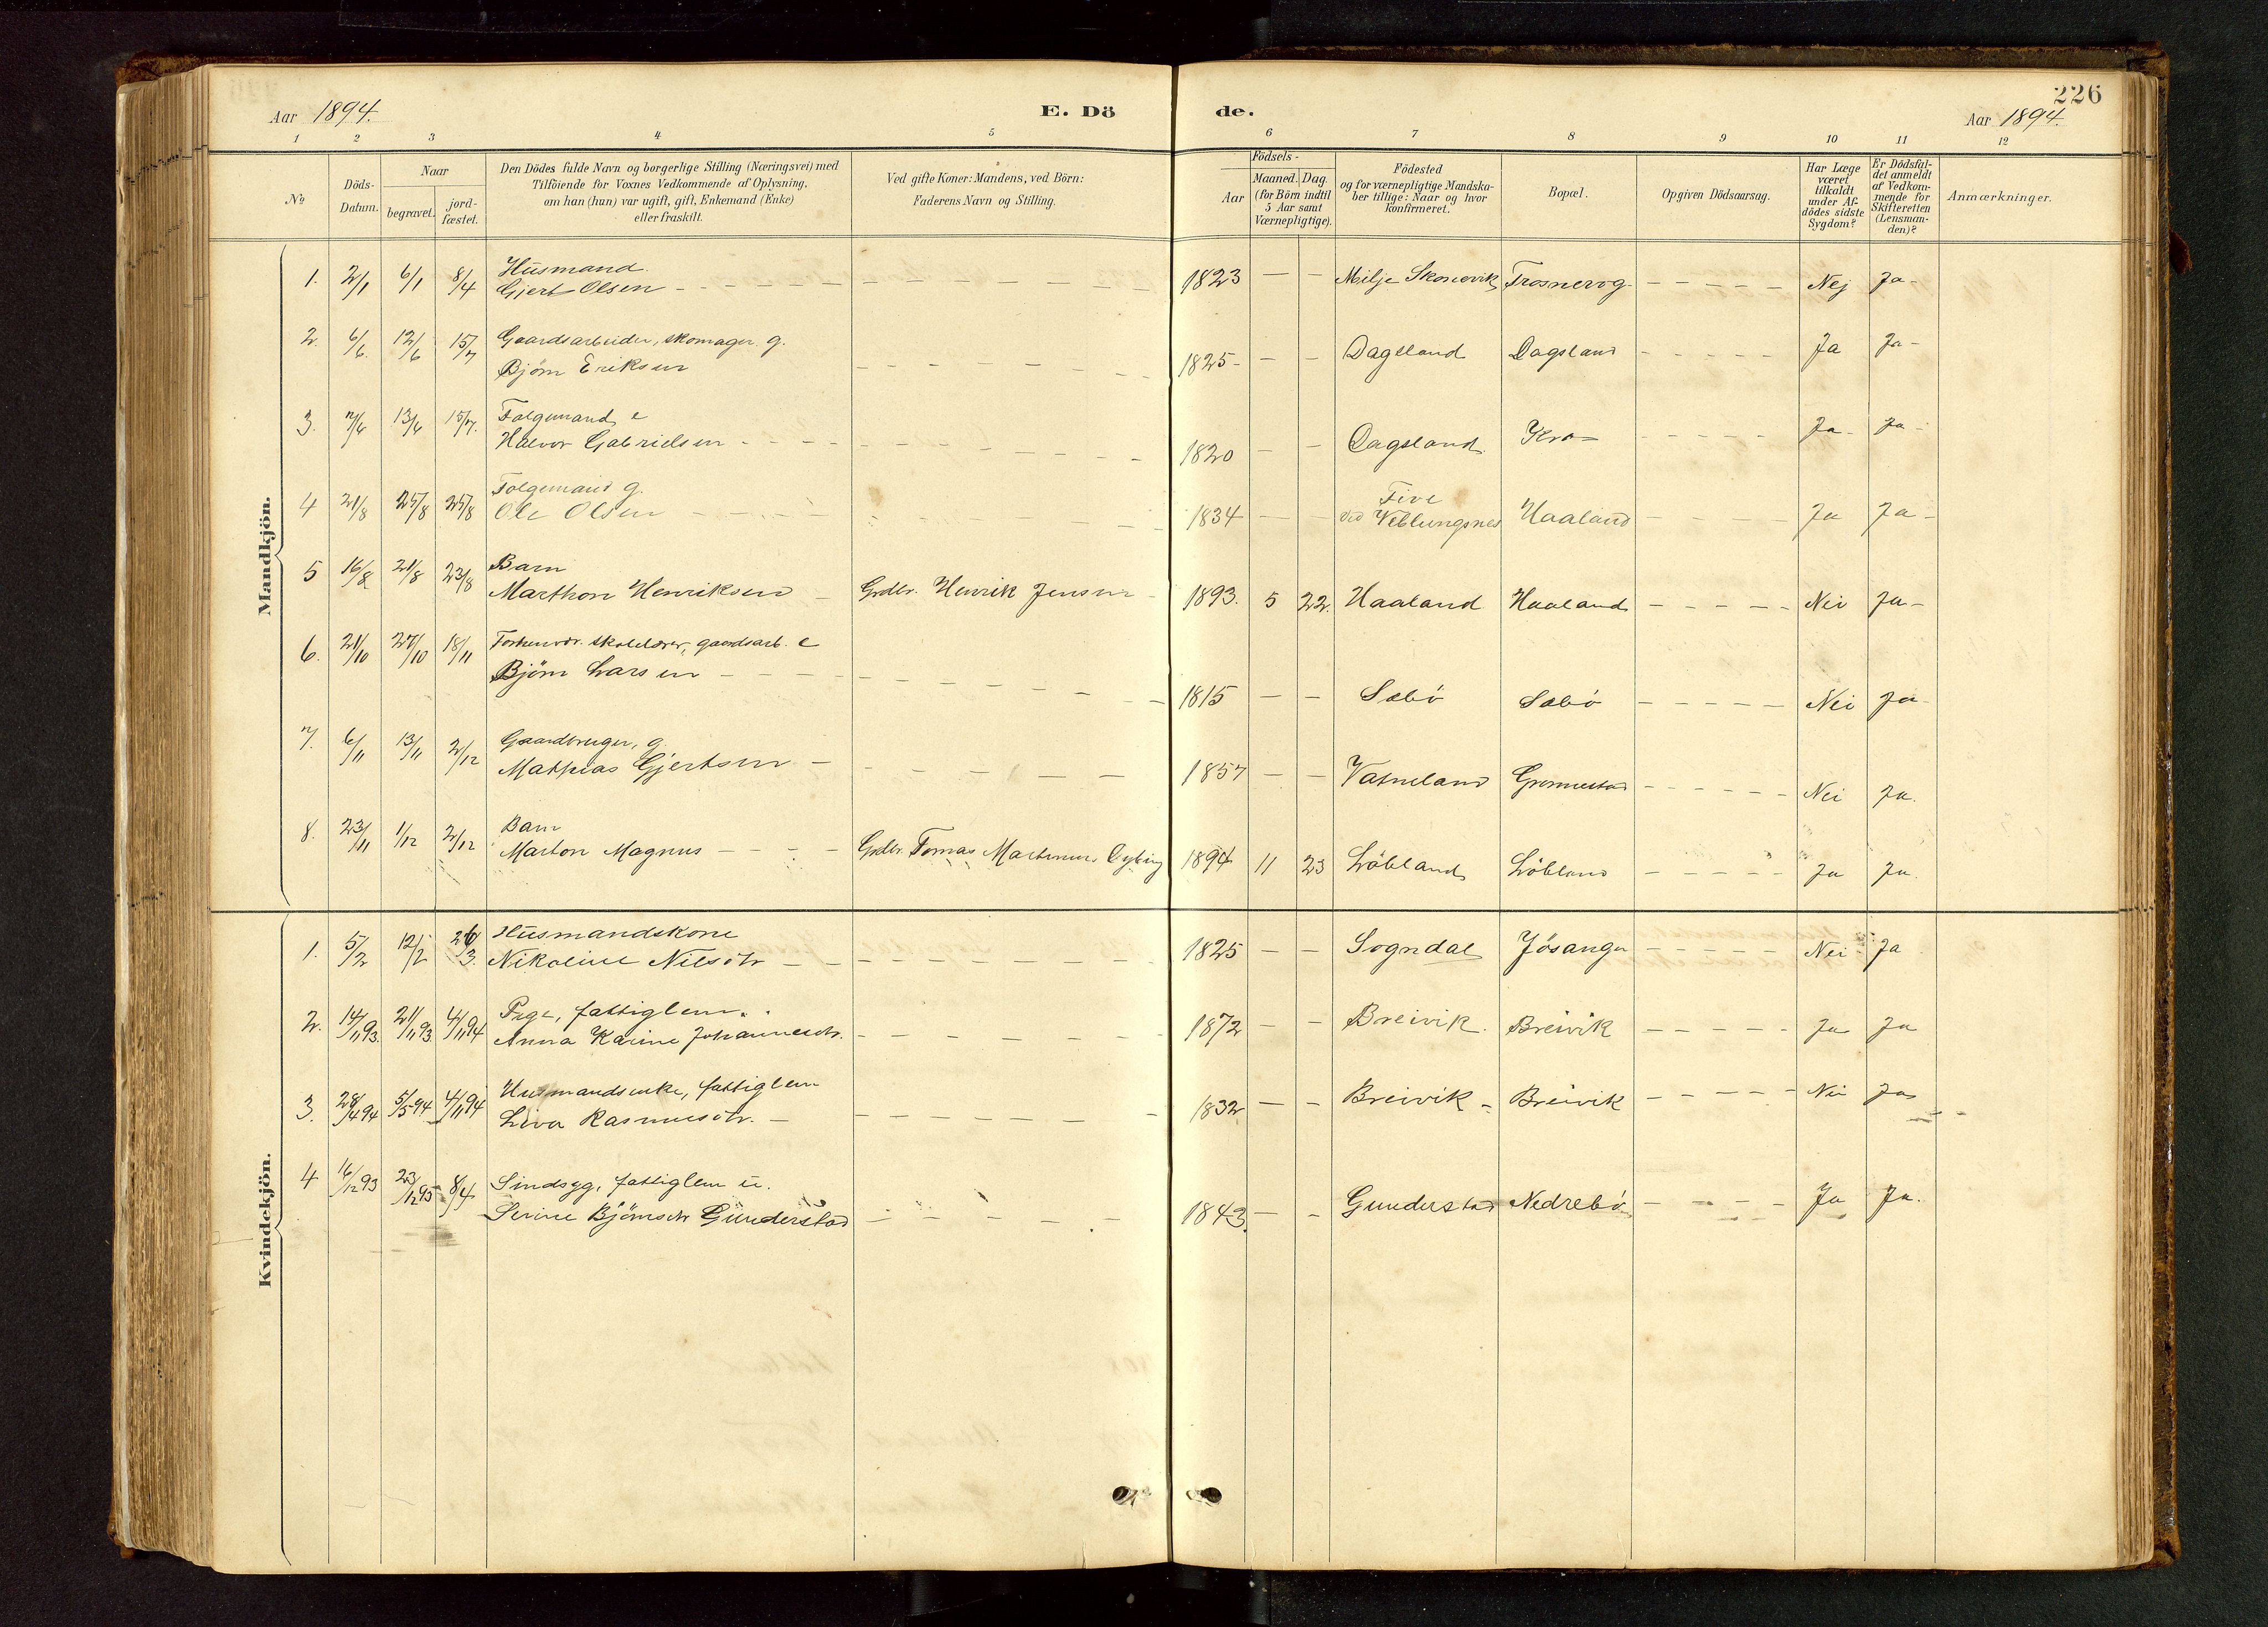 226
Aar 1894.
E. Dö
de.
Aar 1894.
1 2 3 4 5 6 7 8 9 10 11 12
No
Döds-
Datum.
Naar
begravet.
jord-
fæstet.
Den Dödes fulde Navn og borgerlige Stilling (Næringsvei) med
Tilföiende for Voxnes Vedkommende af Oplysning,
om han (hun) var ugift, gift, Enkemand (Enke)
eller fraskilt.
Ved gifte Koner: Mandens, ved Börn:
Faderens Navn og Stilling.
Födsels-
Aar
Maaned. Dag.
(for Börn indtil
5 Aar samt
Værnepligtige).
Födested
og for værnepligtige Mandska-
ber tillige: Naar og hvor
konfirmeret.
Bopæl.
Opgiven Dödsaarsag.
Har Læge
været
tilkaldt
under Af-
dödes sidste
Sygdom?
Er Dödsfal-
det anmeldt
af Vedkom-
mende for
Skifteretten
(Lensman-
den)?
Anmærkninger.
Mandkjön.
1. 2/1 6/1 8/4 Husmand.
Gjert Olsen 1823 — — Milje Skonevik Trosnevog Nej Ja
2. 6/6. 12/6 15/7 Gaardsarbeider, skomager. g.
Bjørn Eriksen 1825 — — Dagsland Dagsland Ja Ja
3. 7/6 13/6 15/7. Folgemand, e
Halvor Gabrielsen 1820 — — Dagsland Kro Ja Ja
4 21/8 25/8 25/8 Folgemand g.
Ole Olsen 1834 — — Five
ved Veblungsnes Haaland Ja Ja
5 16/8 21/8 23/8 Barn
Marthon Henriksen Grdbr. Henrik Jensen 1893. 5 22. Haaland Haaland Nei Ja
6. 21/10 27/10 18/11 Forhenvær. skolelærer, gaardsarb. e
Bjørn Larsen 1815 — — Sæbø Sæbø Nei Ja
7. 6/11 13/11 2/12 Gaardbruger, g
Mathias Gjertsen 1857 — — Vatneland Grønnestad Nei Ja.
8. 23/11 1/12 2/12 Barn
Marton Magnus Grdbr. Tomas Martinus 1894 11 23 Løbland Løbland Ja Ja.
Kvindekjön.
1. 5/2 12/2 26/3. Husmandskone
Nikoline Nilsdtr 1825 — — Sogndal Jøsanger Nei Ja
2. 14/11 93. 21/11 93. 4/11 94 Pige, fattiglem.
Anna Karine Johannesdtr. 1872 — — Breivik. Breivik Ja Ja
3. 28/4 94 5/5 94 4/11 94 Husmandsenke, fattiglem
Liva Rasmusdtr. 1832 — — Breivik Breivik Nei Ja
4 16/12 93 23/12 93 8/4 Sindsyg, fattiglem u.
Serine Bjørnsdtr Gunderstad 1843. — — Gunderstad Nedrebø Ja Ja.